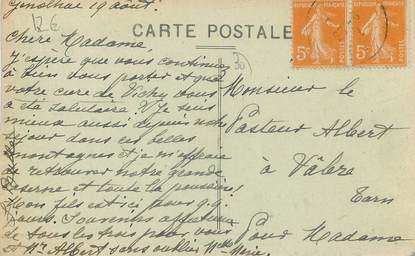 Genolhac 19 août.
12€
CARTE POSTALE
Chère Madame,
J'espère que vous continuez
à bien vous porter et que
votre cure de Vichy vous
a été salutaire. Je suis
mieux aussi depuis notre
séjour dans ces belles
montagnes et je m'effraie
de retrouver notre grande
caserne et toute la poussière!
Mon fils est ici pour qq.
jours. Souvenirs affectueux
de tous les trois pour vous
et Mr Albert sans oublier Melle Marie.
30
Monsieur le
Pasteur Albert
à Vabre
Tarn
Pour Madame
REPUBLIQUE FRANÇAISE
5c
POSTES
REPUBLIQUE FRANÇAISE
5c
POSTES